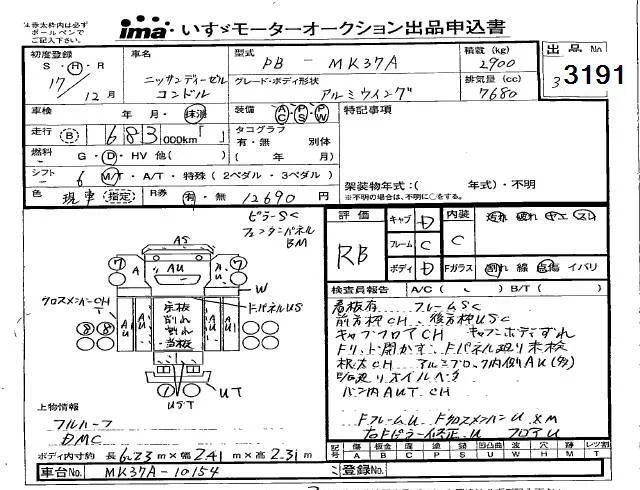 は赤太枠内は必ず
ボールペンで
ご記入下さい。
ima いすゞモーターオークション出品申込書
初度登録
S・H・R
17/12月
車名
ニッサンディーゼル
コンドル
型式
PB - MK37A
グレード・ボディ形状
アルミウイング
積載(kg)
2900
排気量(cc)
7680
出品No
3191
車検 年 月・抹消
走行 B 683 000km「 」
燃料 G・D・HV 他( )
シフト 6 M/T・A/T・特殊(2ペダル・3ペダル)
色 現車 指定
R券 有・無 12690円
装備 AC・PS・PW
タコグラフ
有・無 別体
( 年 月)
特記事項
架装物年式:( 年式)・不明
※不明の場合は、不明に○をする。
ピラーSC
フェンダーパネル
BM
AS
7 A AU 7
W
クロスメンバーCH
T
FパネルUS
AU
床板
割れ
割れ
当板
AU
8 8
1
UT
UST
上物情報
フルハーフ
DMC
ボディ内寸約 長6.23m×幅2.41m×高2.31m
車台No. MK37A-10154
評価
RB
キャブ D
フレーム C
ボディ D
内装
C
Fガラス 割れ 線 点傷 イバリ
検査員報告 A/C( ) B/T( )
看板有 フレームSC
前方枠CH、後方枠USC
キャブフロアCH キャブボディずれ
Fリッド開かず、Fパネル廻り未検
根太CH アルミブロック内側AU(多)
バン内AUT CH
FフレームU FクロスメンバーU XM
右Fピラー修正U フロアU
記号 傷 板金 腐食 塗装 凹凸曲 波 穴 跡 レツ割
A B C P S U W H M T
登録No.